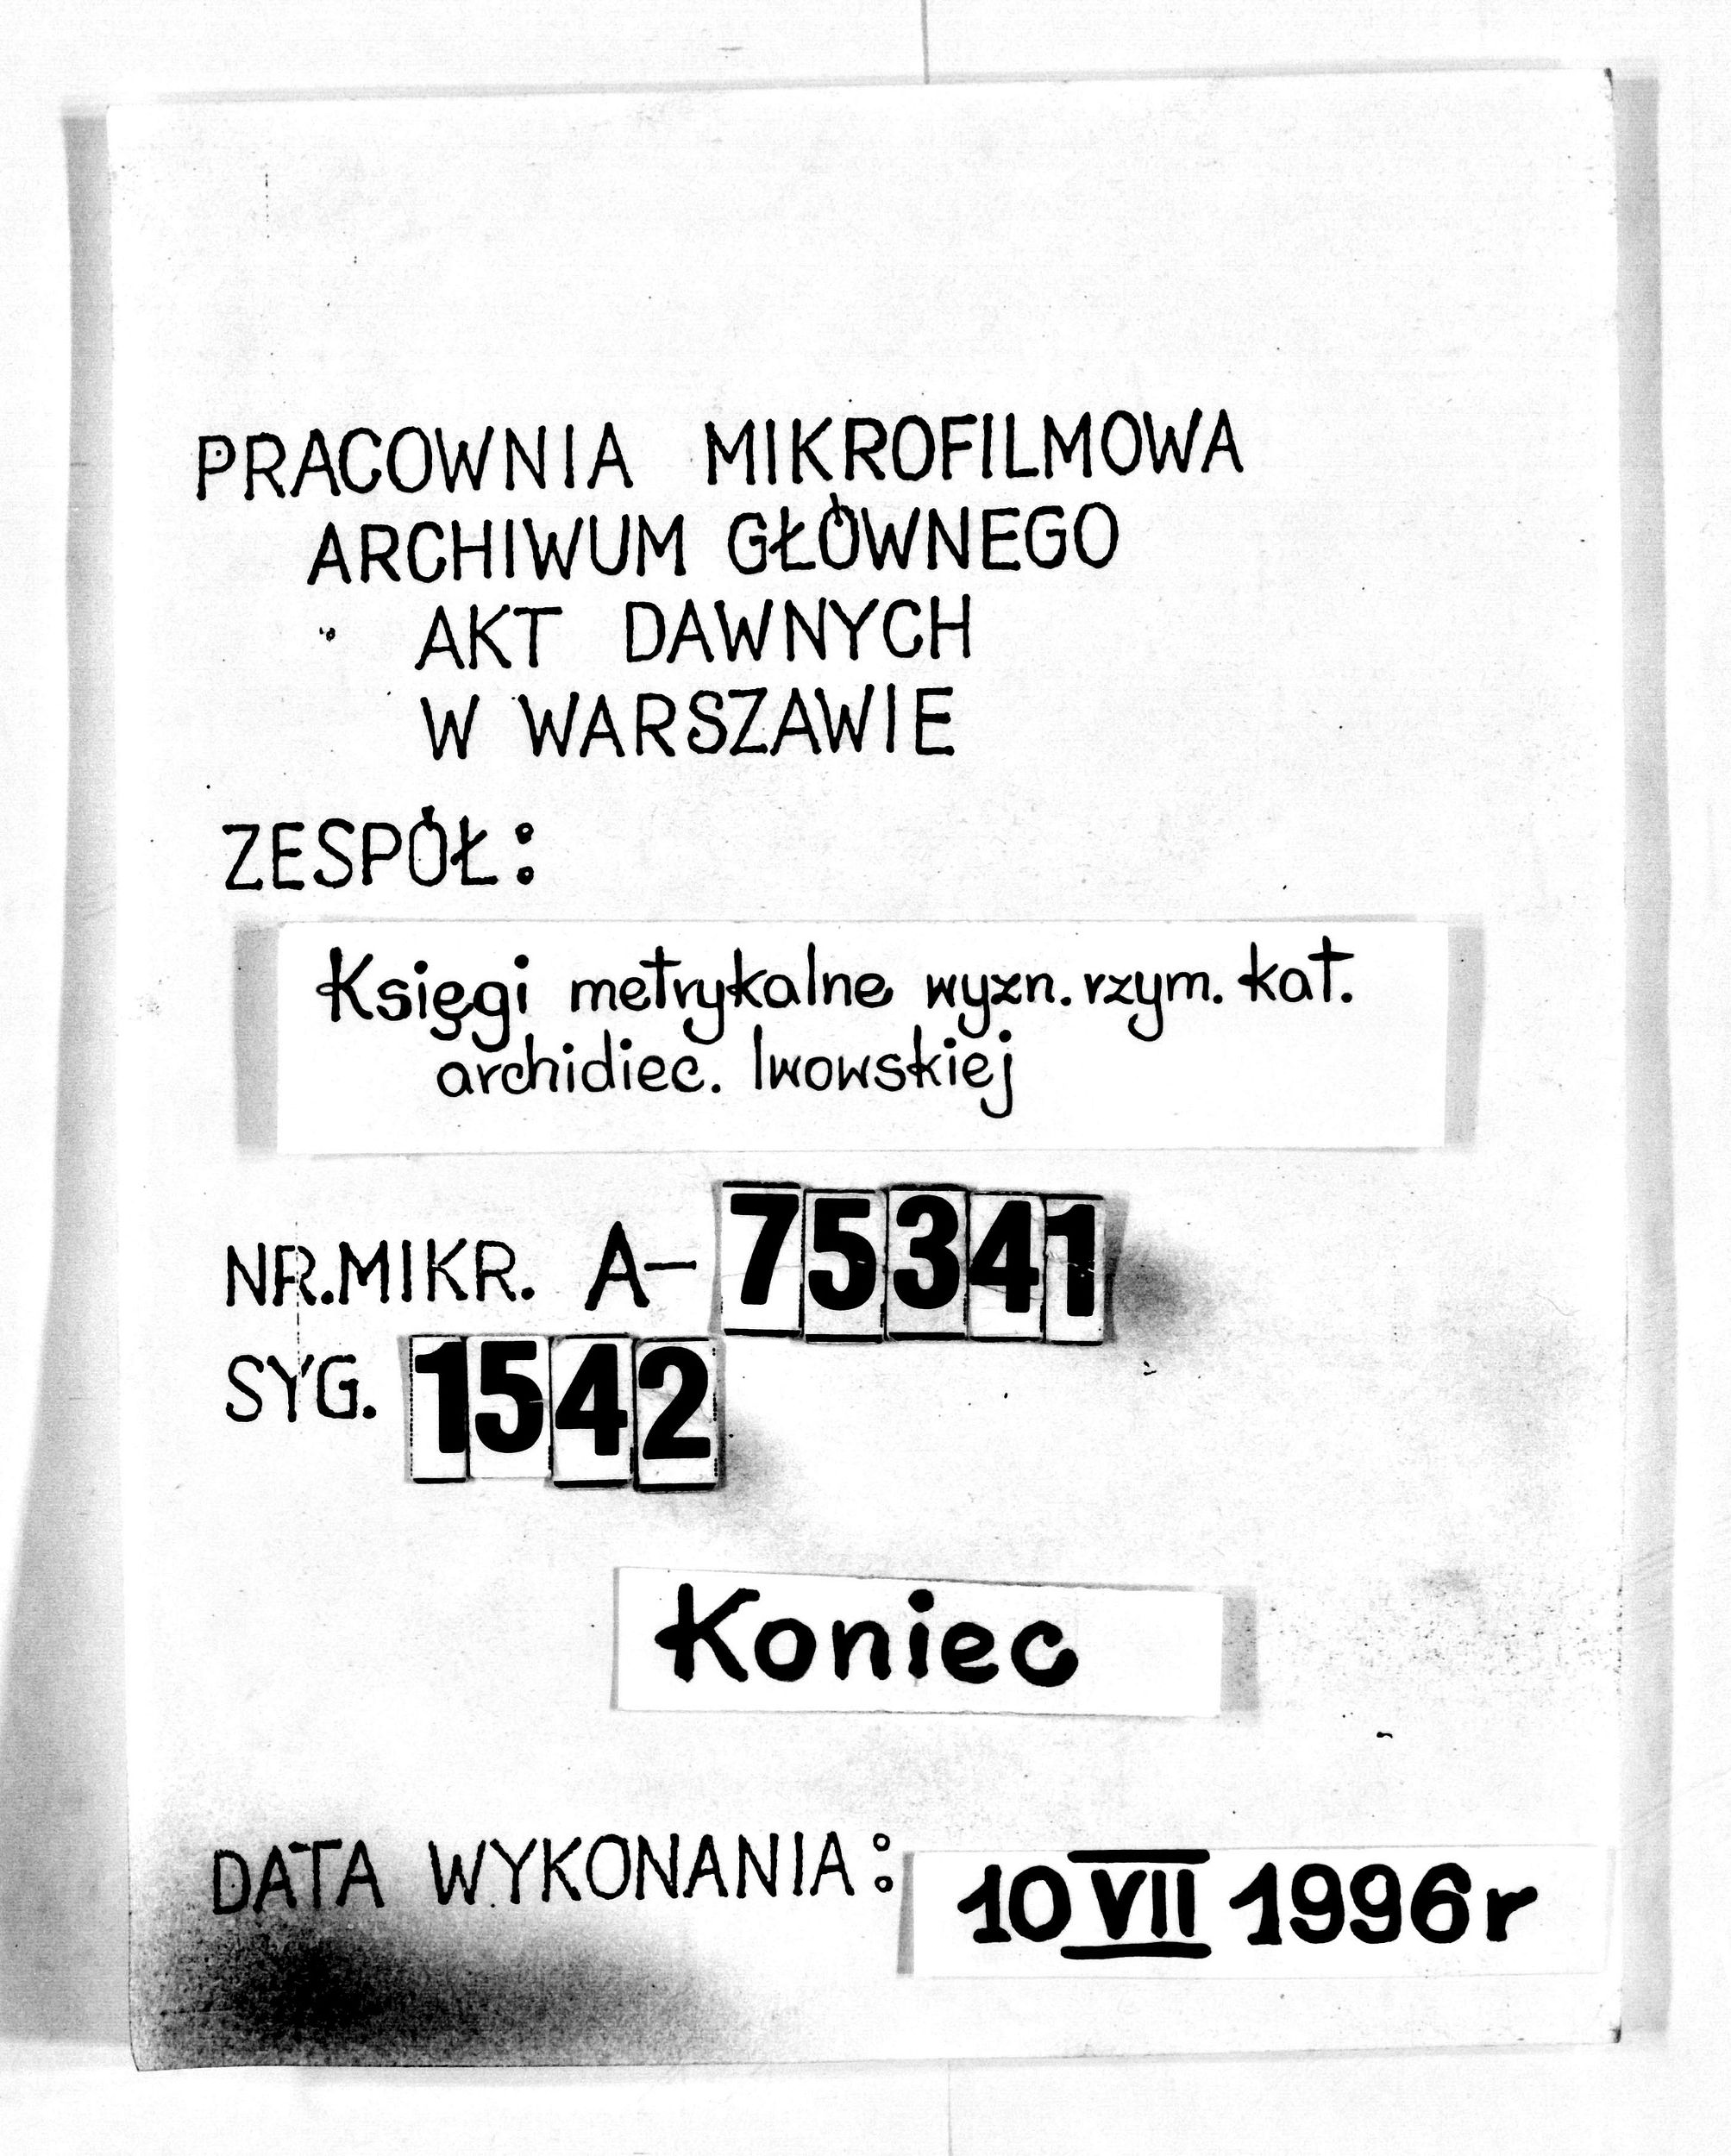 PRACOWNIA MIKROFILMOWA
ARCHIWUM GŁÓWNEGO
AKT DAWNYCH
W WARSZAWIE
ZESPÓŁ:
Księgi metrykalne wyzn. rzym. kat.
archidiec. lwowskiej
NR.MIKR. A- 75341
SYG. 1542
Koniec
DATA WYKONANIA: 10 VII 1996r